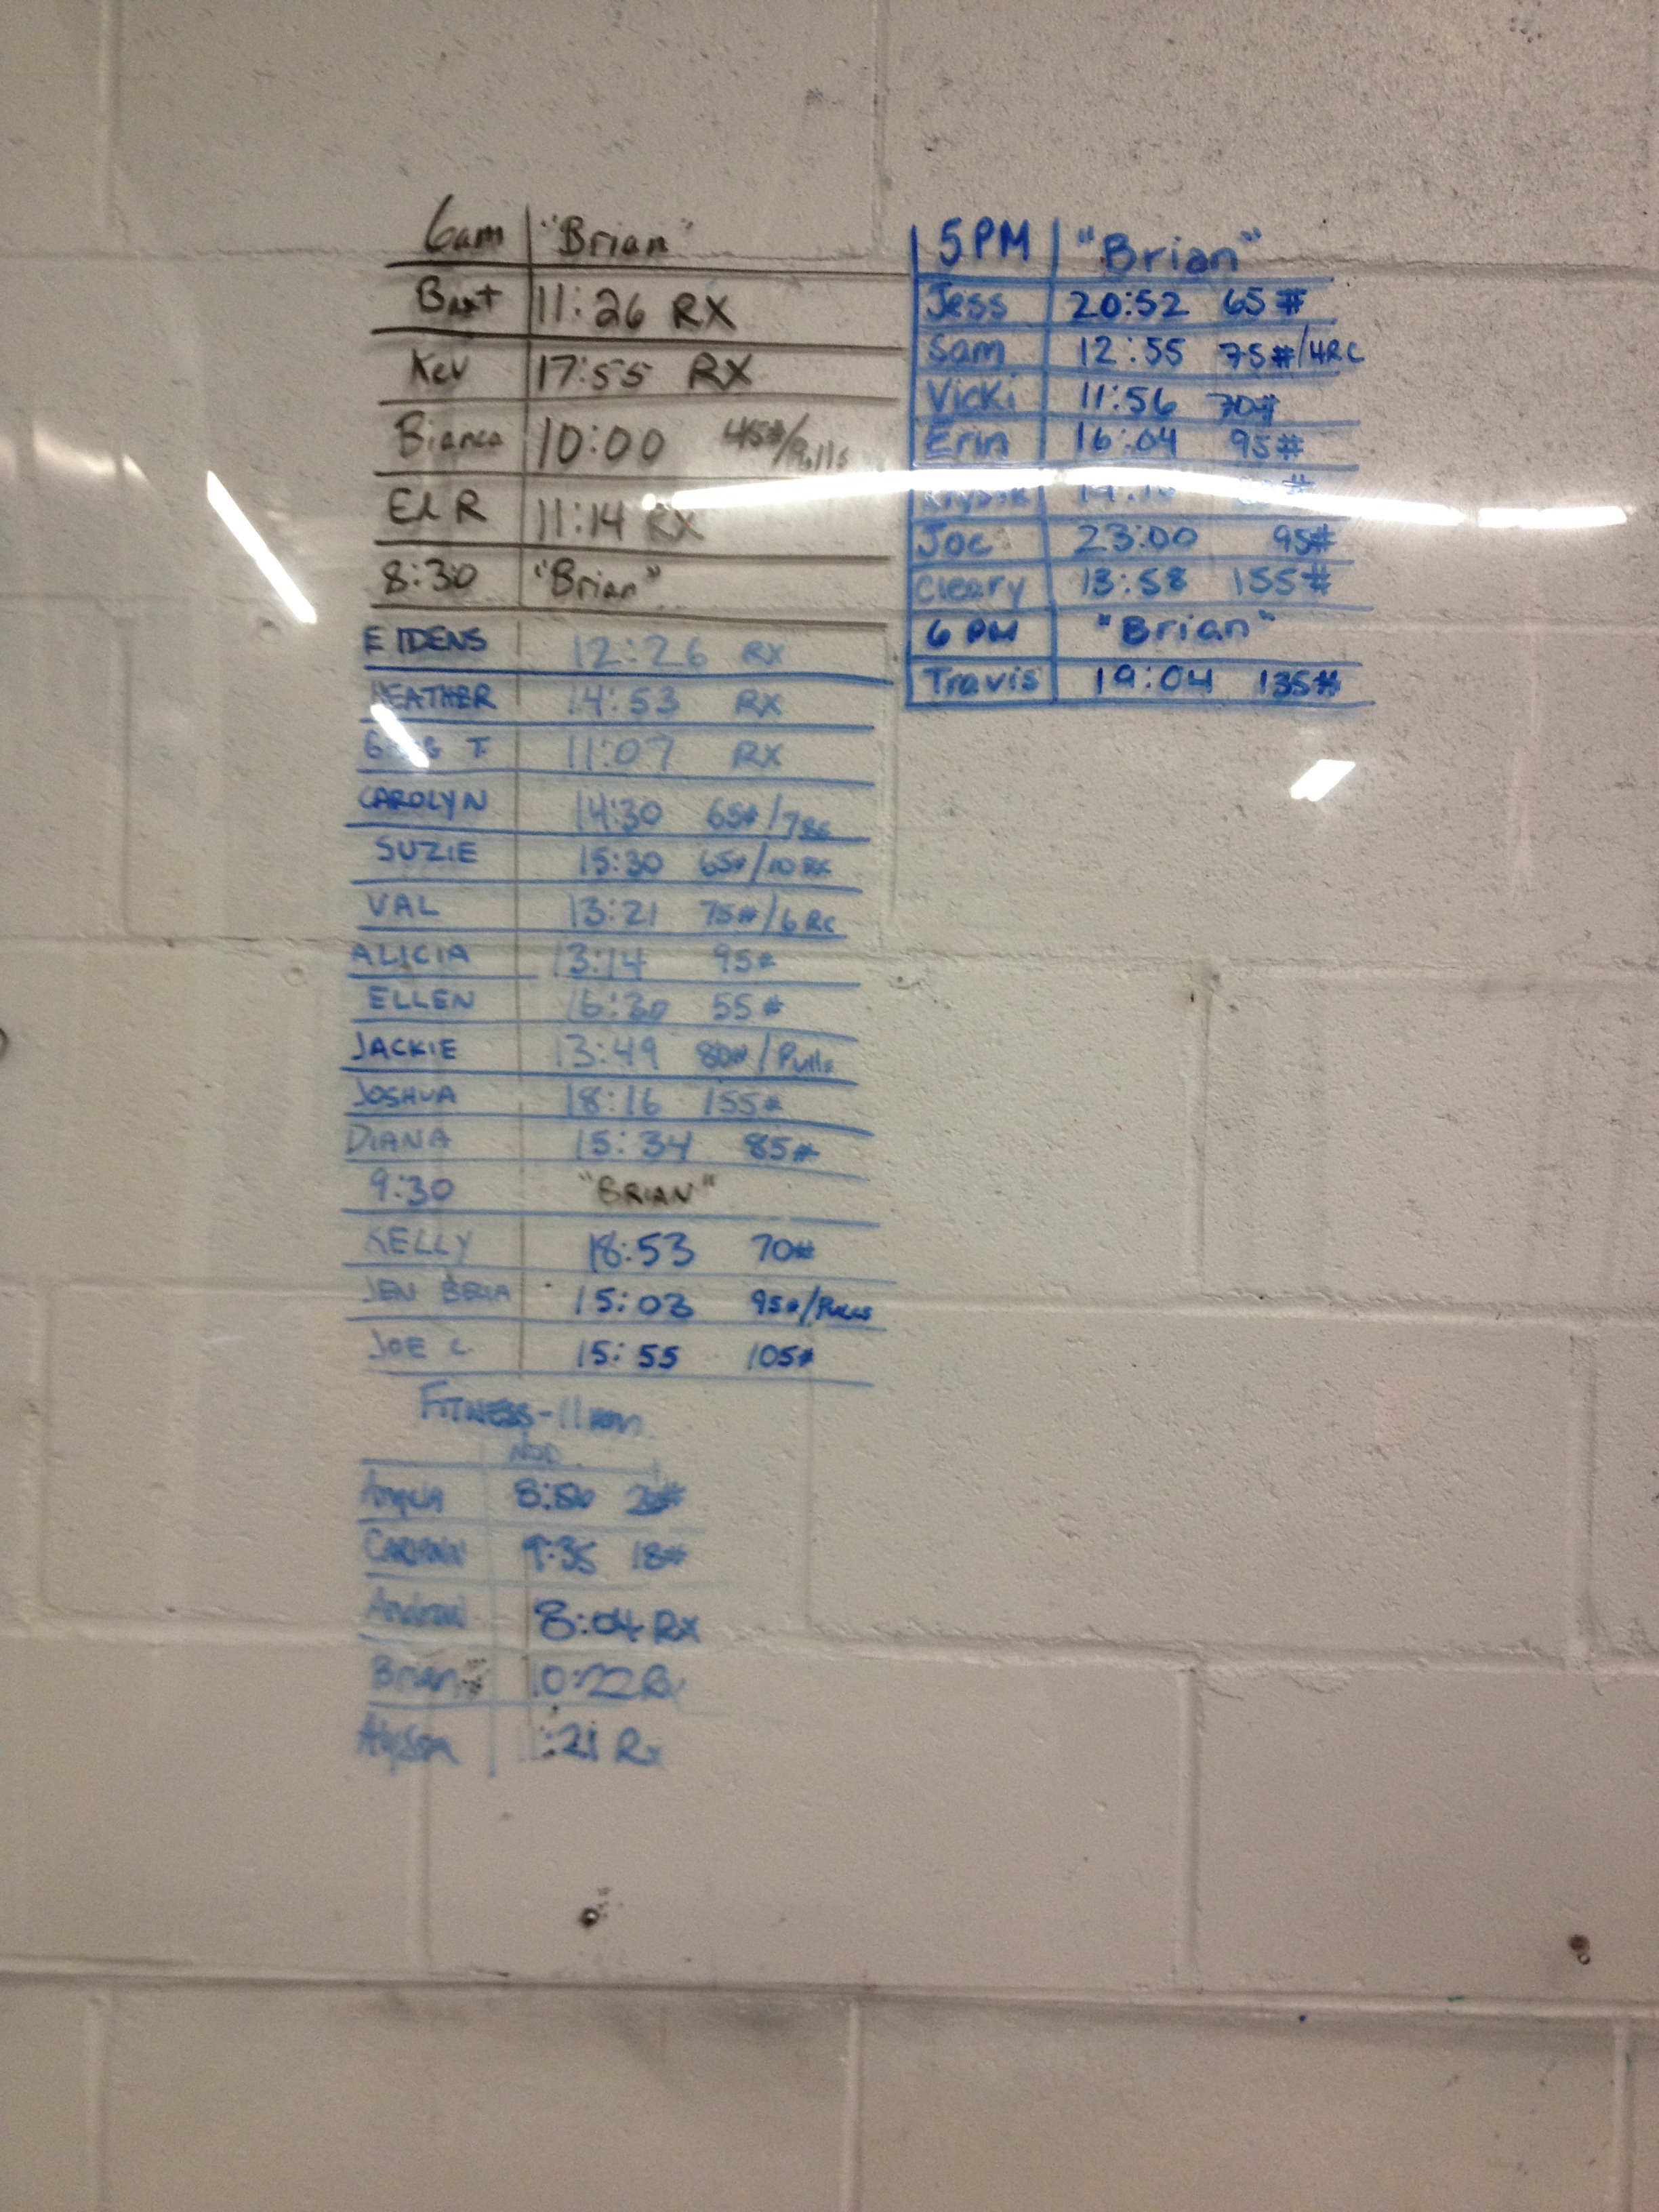 6am "Brian"
Bart 11:26 RX
Kev 17:55 RX
Bianca 10:00 45#/Pulls
Ed R 11:14 RX
8:30 "Brian"
EIDENS 12:26 RX
HEATHER 14:53 RX
T 11:07 RX
CAROLYN 14:30 65#/7RC
SUZIE 15:30 65#/10 RC
VAL 13:21 75#/6 RC
ALICIA 13:14 95#
ELLEN 16:30 55#
JACKIE 13:49 80#/Pulls
JOSHUA 18:16 155#
DIANA 15:34 85#
9:30 "BRIAN"
KELLY 18:53 70#
JEN BELLA 15:03 95#/PULLS
JOE C 15:55 105#
FITNESS-11am
Angela
9:35 18#
Andrew 8:04 RX
Brian 10:22 Rx
Alyssa :21 Rx
5PM "Brian"
Jess 20:52 65#
Sam 12:55 75#/4RC
Vicki 11:56 70#
Erin 16:04 95#
Joe 23:00 95#
Cleary 13:58 155#
6 PM "Brian"
Travis 19:04 135#